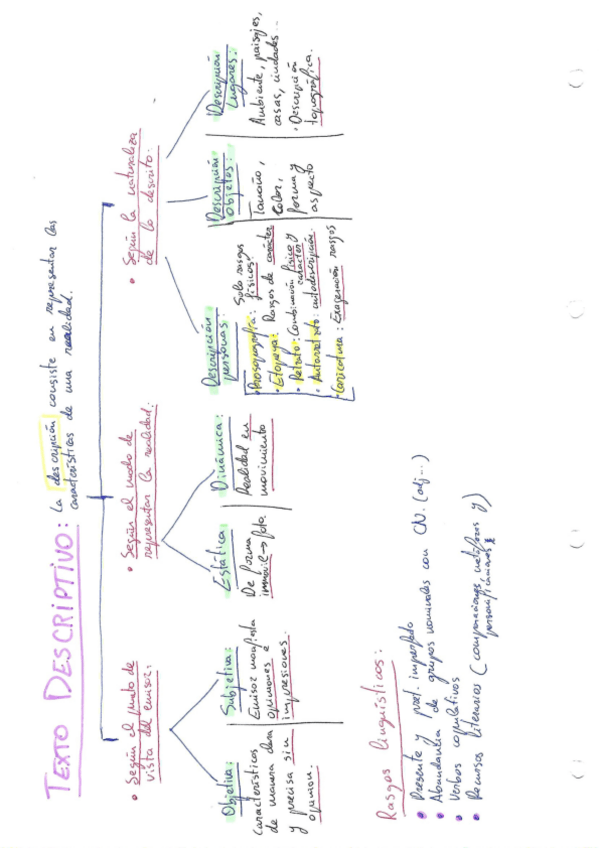 TEXTO DESCRIPTIVO: La descripción consiste en representar las
características de una realidad.
• Según el punto de
vista del emisor:
Objetiva:
Características
de manera clara
y precisa sin
opinion.
Subjetiva:
Emisor manifiesta
opiniones e
impresiones.
• Según el modo de
representar la realidad:
Estática:
De forma
inmovil → foto.
Dinámica:
Realidad en
movimiento
• Según la naturaleza
de lo descrito:
Descripción
personas:
• Prosopografía: Solo rasgos
físicos.
• Etopeya: Rasgos de carácter
• Retrato: Combinación físico y
carácter
• Autorretrato: autodescripción.
• Caricatura: Exageración rasgos
Descripción
objetos:
Tamaño,
color,
forma y
aspecto
Descripción
Lugares:
Ambiente, paisajes,
casas, ciudades...
• Descripción
topográfica.
Rasgos lingüísticos:
• Presente y pret. imperfecto
• Abundancia de grupos nominales con CN. (adj...)
• Verbos copulativos
• Recursos literarios (comparaciones, metáforas y
personificaciones)